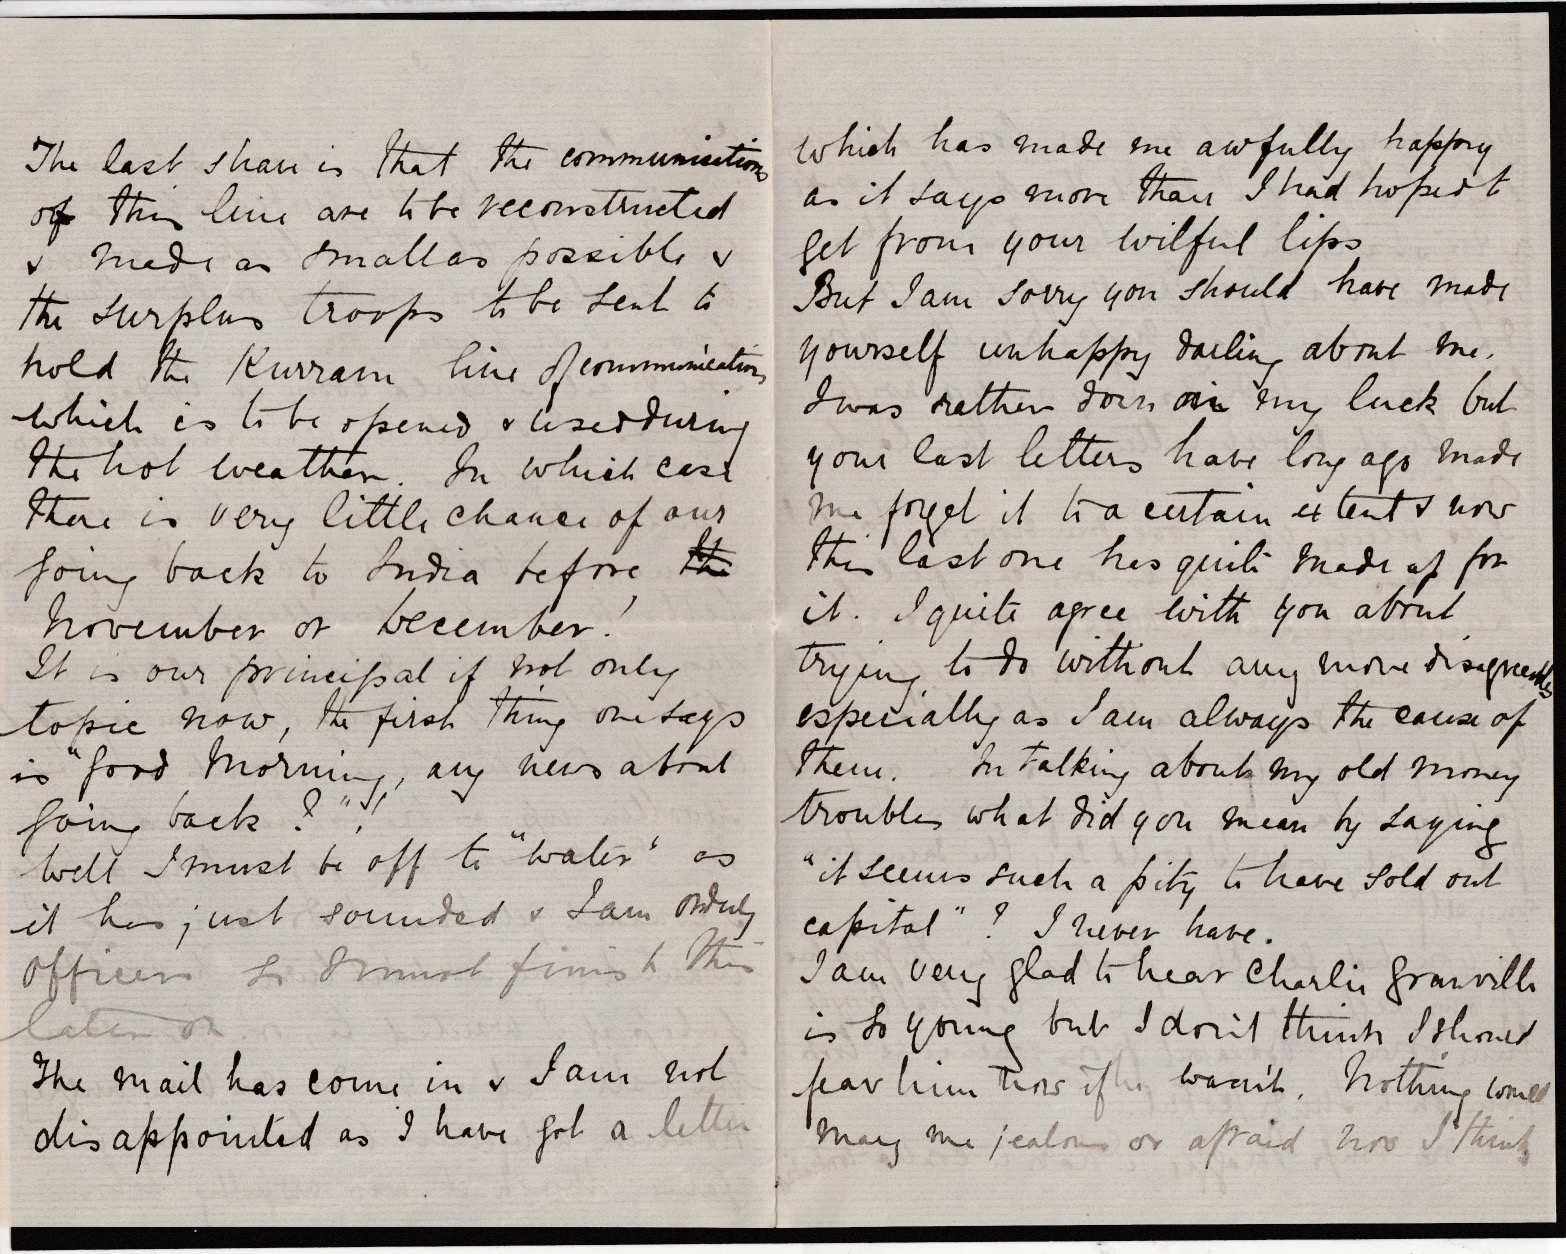 The last shave is that the communications
of this line are to be reconstructed
& made as small as possible &
the surplus troops to be sent to
hold the Kurram line of communication
which is to be opened & used during
the hot weather. In which case
there is very little chance of our
going back to India before, the
November or December!
It is our principal if not only
topic now, the first thing one says
is "Good Morning, any news about
going back?"!
Well I must be off to "water" as
it has just sounded & I am orderly
officer so I must finish this
later on
The mail has come in & I am not
disappointed as I have got a letter
which has made me awfully happy
as it says more than I had hoped to
get from your wilful lips
But I am sorry you should have made
yourself unhappy darling about me.
I was rather down in my luck but
your last letters have long ago made
me forget it to a certain extent & now
this last one has quite made up for
it. I quite agree with you about
trying to do without any more disagreements
especially as I am always the cause of
them. In talking about my old money
troubles what did you mean by saying
"it seems such a pity to have sold out
capital"? I never have.
I am very glad to hear Charlie Granville
is so young but I don't think I should
fear him now if he wasn't. Nothing would
many me jealous or afraid now I think